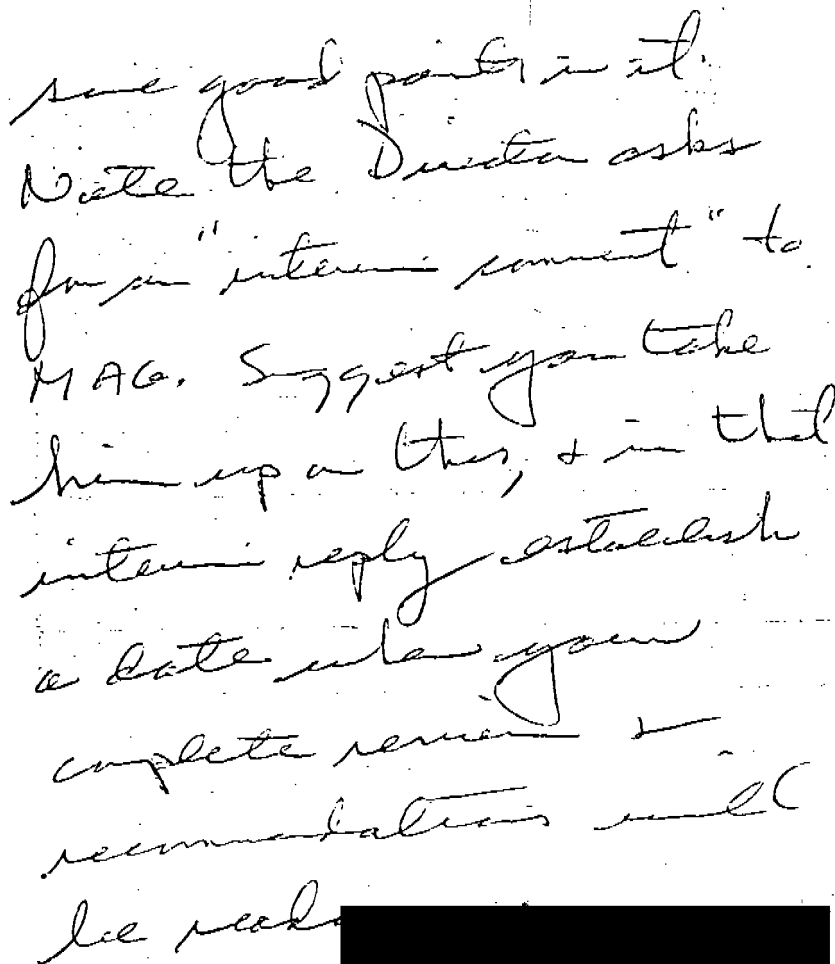 some good points in it.
Note the Director asks
for an "interim comment" to
MAG. Suggest you take
him up on this, & in that
interim reply establish
a date when your
complete review &
recommendations will
be ready